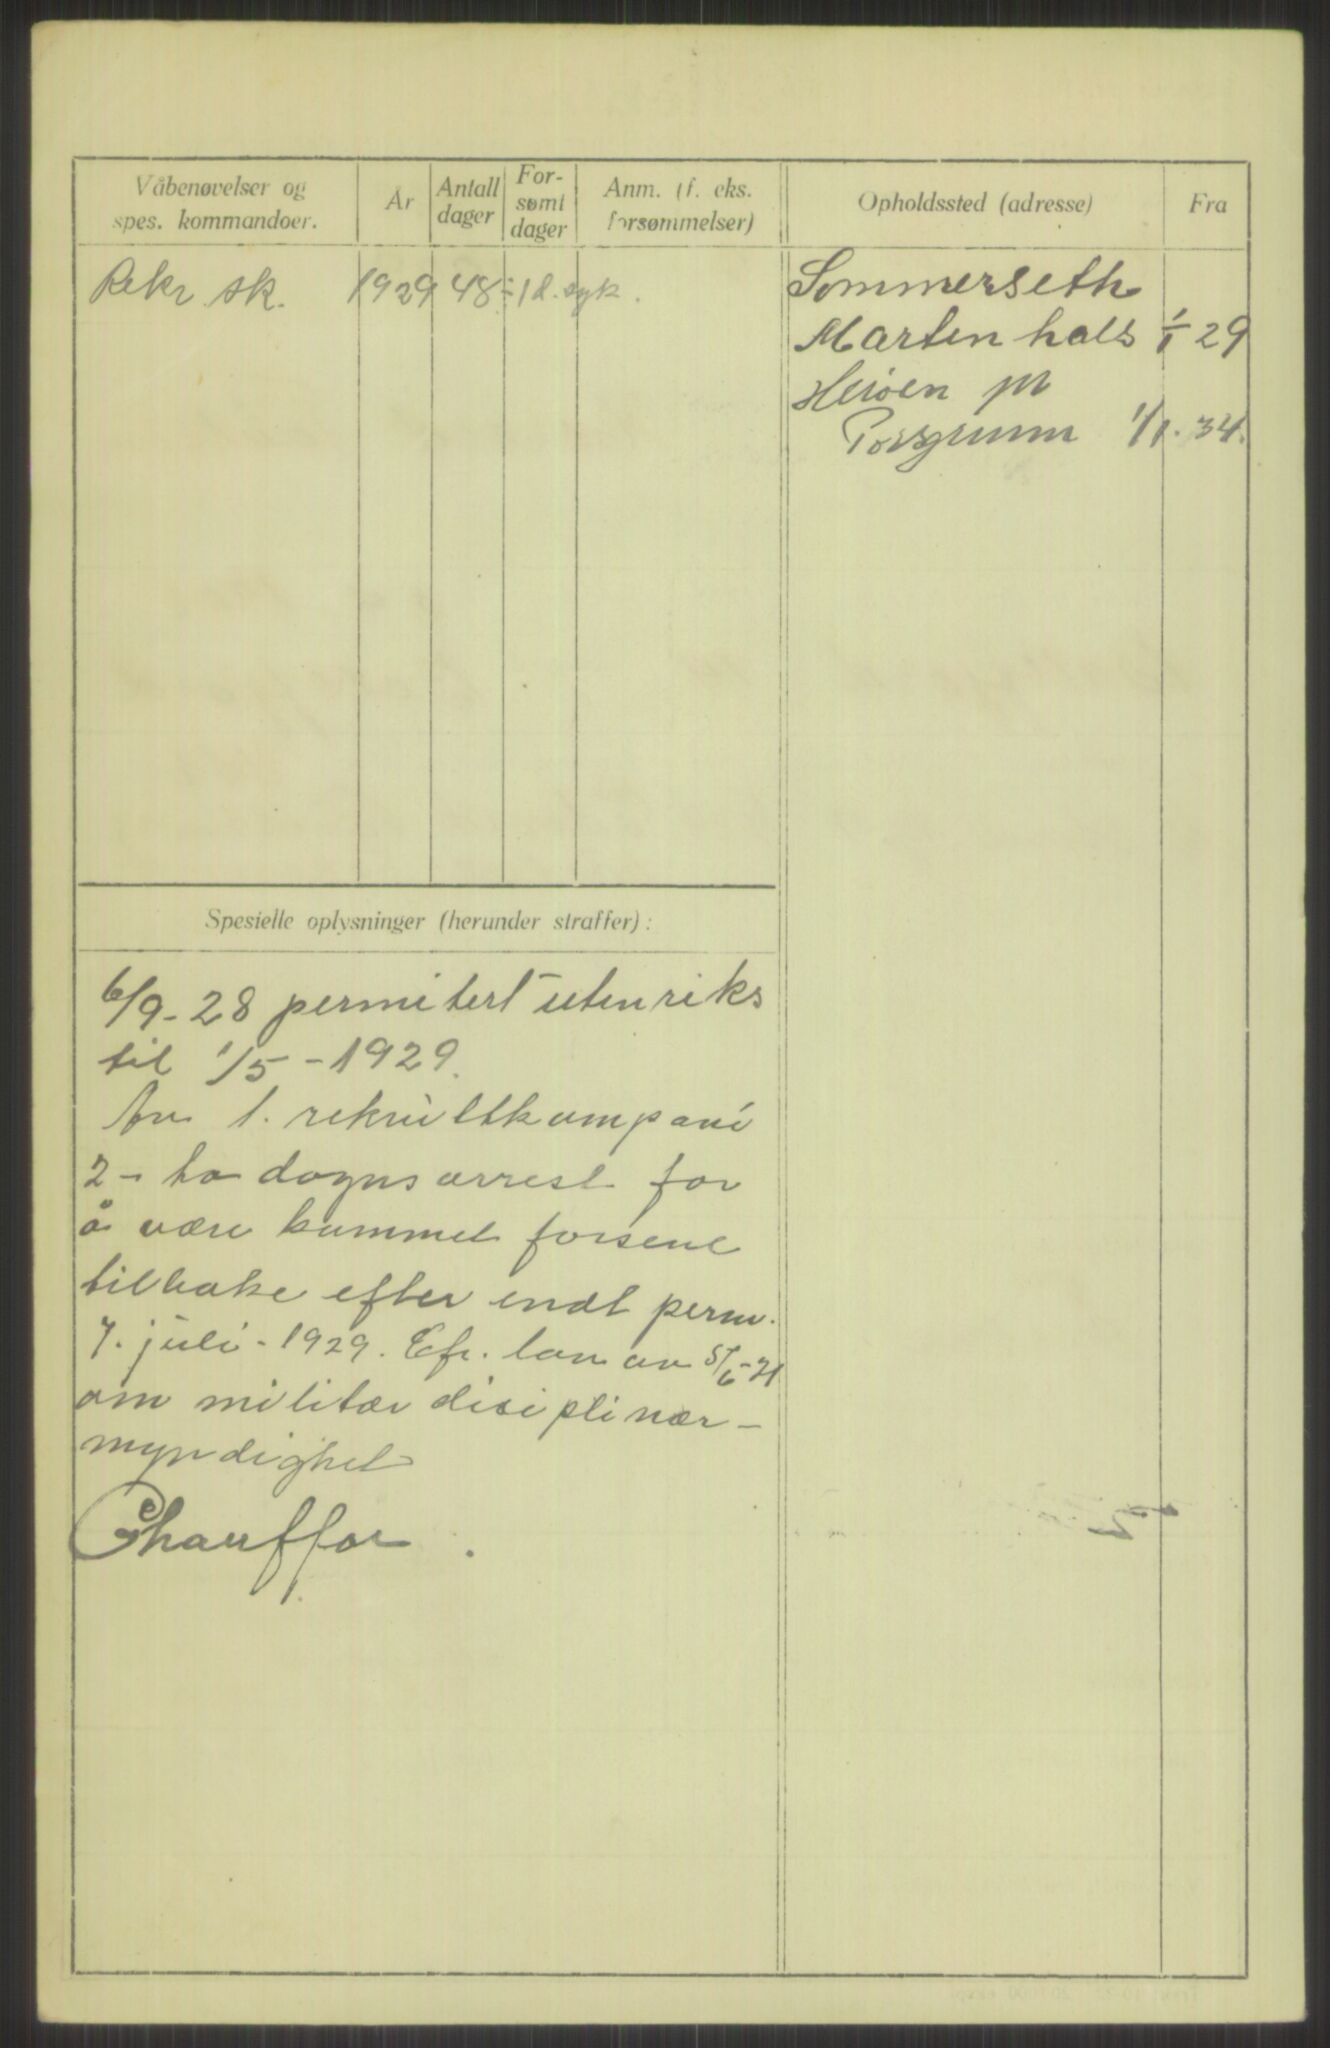 Våbenøvelser og
spes. kommandoer.
År
Antall
dager
For-
sømt
dager
Anm. (f. eks.
forsømmelser)
Opholdssted (adresse)
Fra
Rekr. sk. 1929 48 ÷ 1 d. syk.
Sommerseth
Marten hals 1/1 29
Herøen pr
Porsgrunn 1/1. 34.
Spesielle oplysninger (herunder straffer):
6/9-28 permitert utenriks
til 1/5-1929.
Av 1. rekruttkompani
2 - to døgns arrest for
å være kommet forsent
tilbake efter endt perm.
7. juli - 1929. Cfr. lov av 5/6-21
om militær disiplinær-
myndighet
Chauffør.